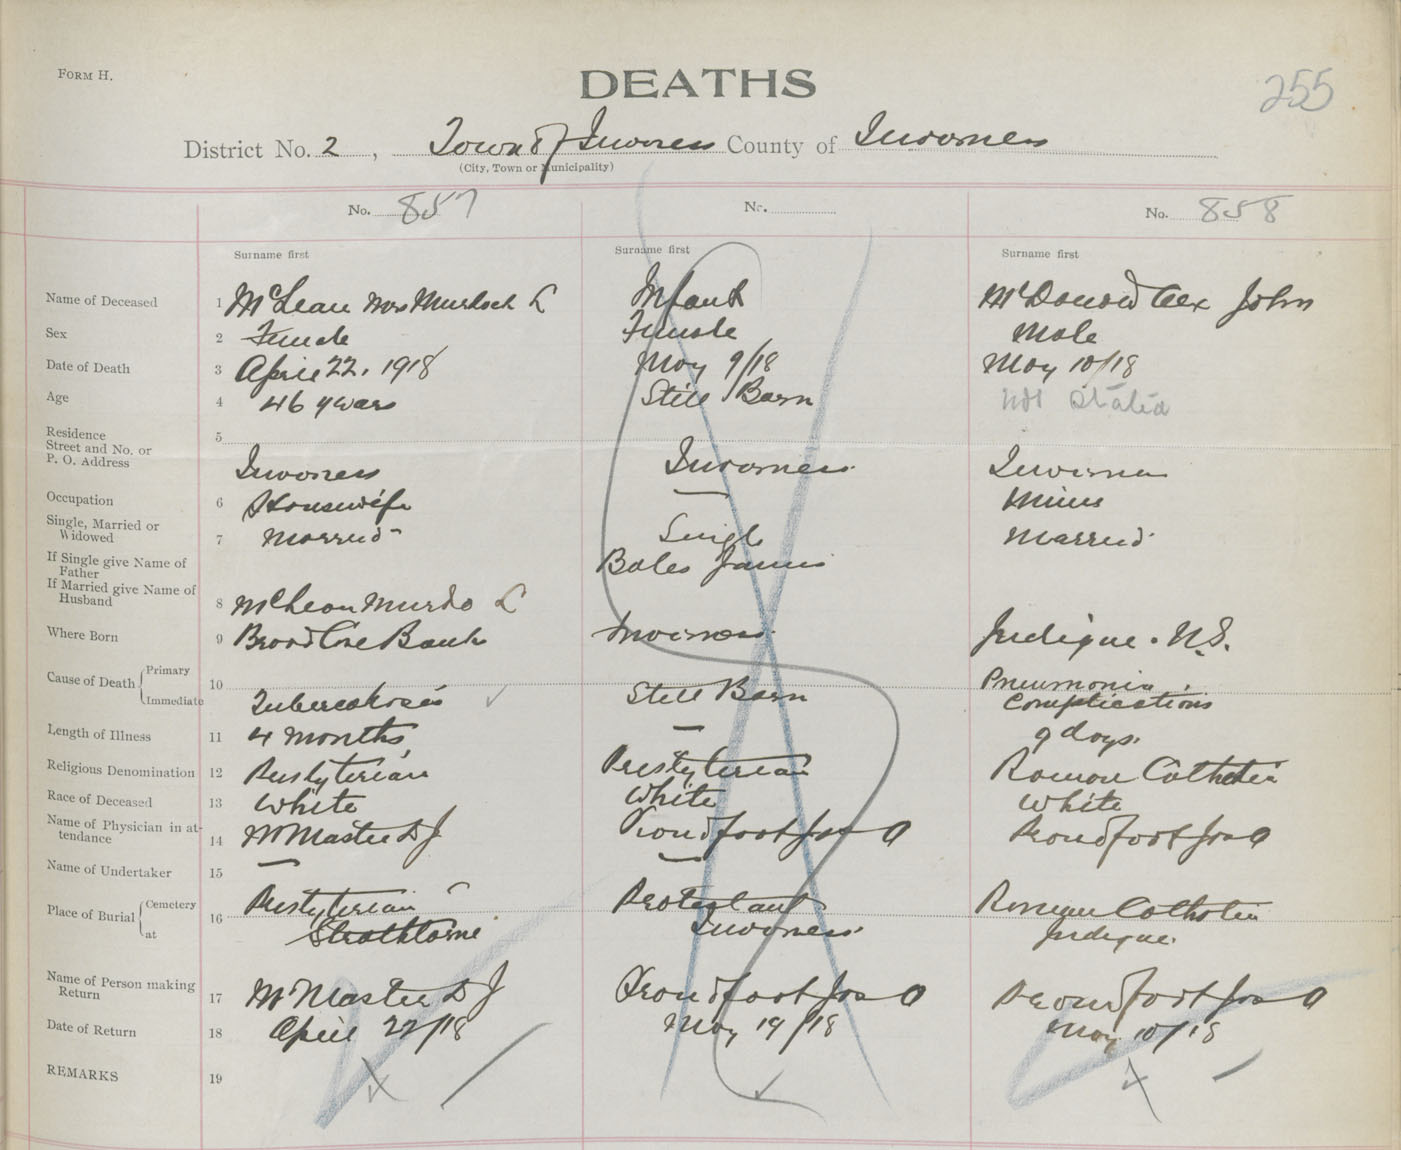 FORM H.
DEATHS
255
District No. 2 , Town of Inverness County of Inverness
(City, Town or Municipality)
No. 857
No.
No. 858
Surname first
Surname first
Surname first
Name of Deceased 1 McLean Mrs Murdoch L Infant McDonald Alex John
Sex 2 Female Female Male
Date of Death 3 April 22, 1918 May 9/18 May 10/18
Age 4 46 years Still Born Not Stated
Residence 5
Street and No. or
P. O. Address Inverness Inverness Inverness
Occupation 6 Housewife — Miner
Single, Married or
Widowed 7 Married Single Married
If Single give Name of
Father Boles James
If Married give Name of
Husband 8 McLean Murdo L
Where Born 9 Broad Cove Banks Inverness Judique. N.S.
Cause of Death Primary 10 Pneumonia
Immediate Tuberculosis Still Born Complications
Length of Illness 11 4 months — 9 days.
Religious Denomination 12 Presbyterian Presbyterian Roman Catholic
Race of Deceased 13 White White White
Name of Physician in at-
tendance 14 McMaster D J Proudfoot Jas A Proudfoot Jas A
Name of Undertaker 15 — —
Place of Burial Cemetery 16 Presbyterian Protestant Roman Catholic
at Strathlorne Inverness. Judique.
Name of Person making
Return 17 McMaster D J Proudfoot Jas A Proudfoot Jas A
Date of Return 18 April 22/18 May 19/18 May 10/18
REMARKS 19